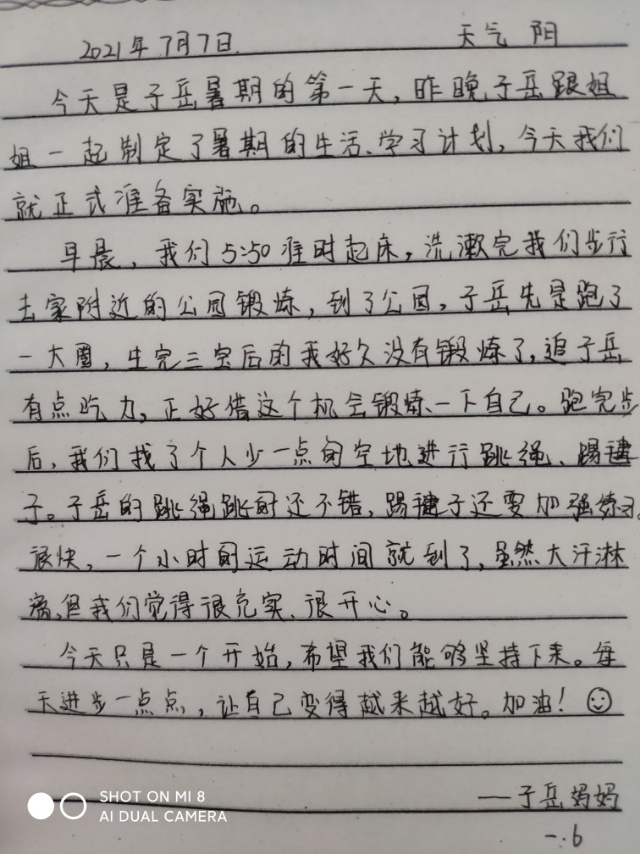 2021年7月7日 天气 阳
今天是子岳暑期的第一天,昨晚子岳跟姐
姐一起制定了暑期的生活、学习计划,今天我们
就正式准备实施。
早晨,我们5:50准时起床,洗漱完我们步行
去家附近的公园锻炼,到了公园,子岳先是跑了
一大圈,生完三宝后的我好久没有锻炼了,追子岳
有点吃力,正好借这个机会锻炼一下自己。跑完步
后,我们找了个人少一点的空地进行跳绳、踢毽
子。子岳的跳绳跳的还不错,踢毽子还要加强练习。
很快,一个小时的运动时间就到了,虽然大汗淋
漓,但我们觉得很充实、很开心。
今天只是一个开始,希望我们能够坚持下来。每
天进步一点点,让自己变得越来越好。加油!
——子岳妈妈
一.6
SHOT ON MI 8
AI DUAL CAMERA